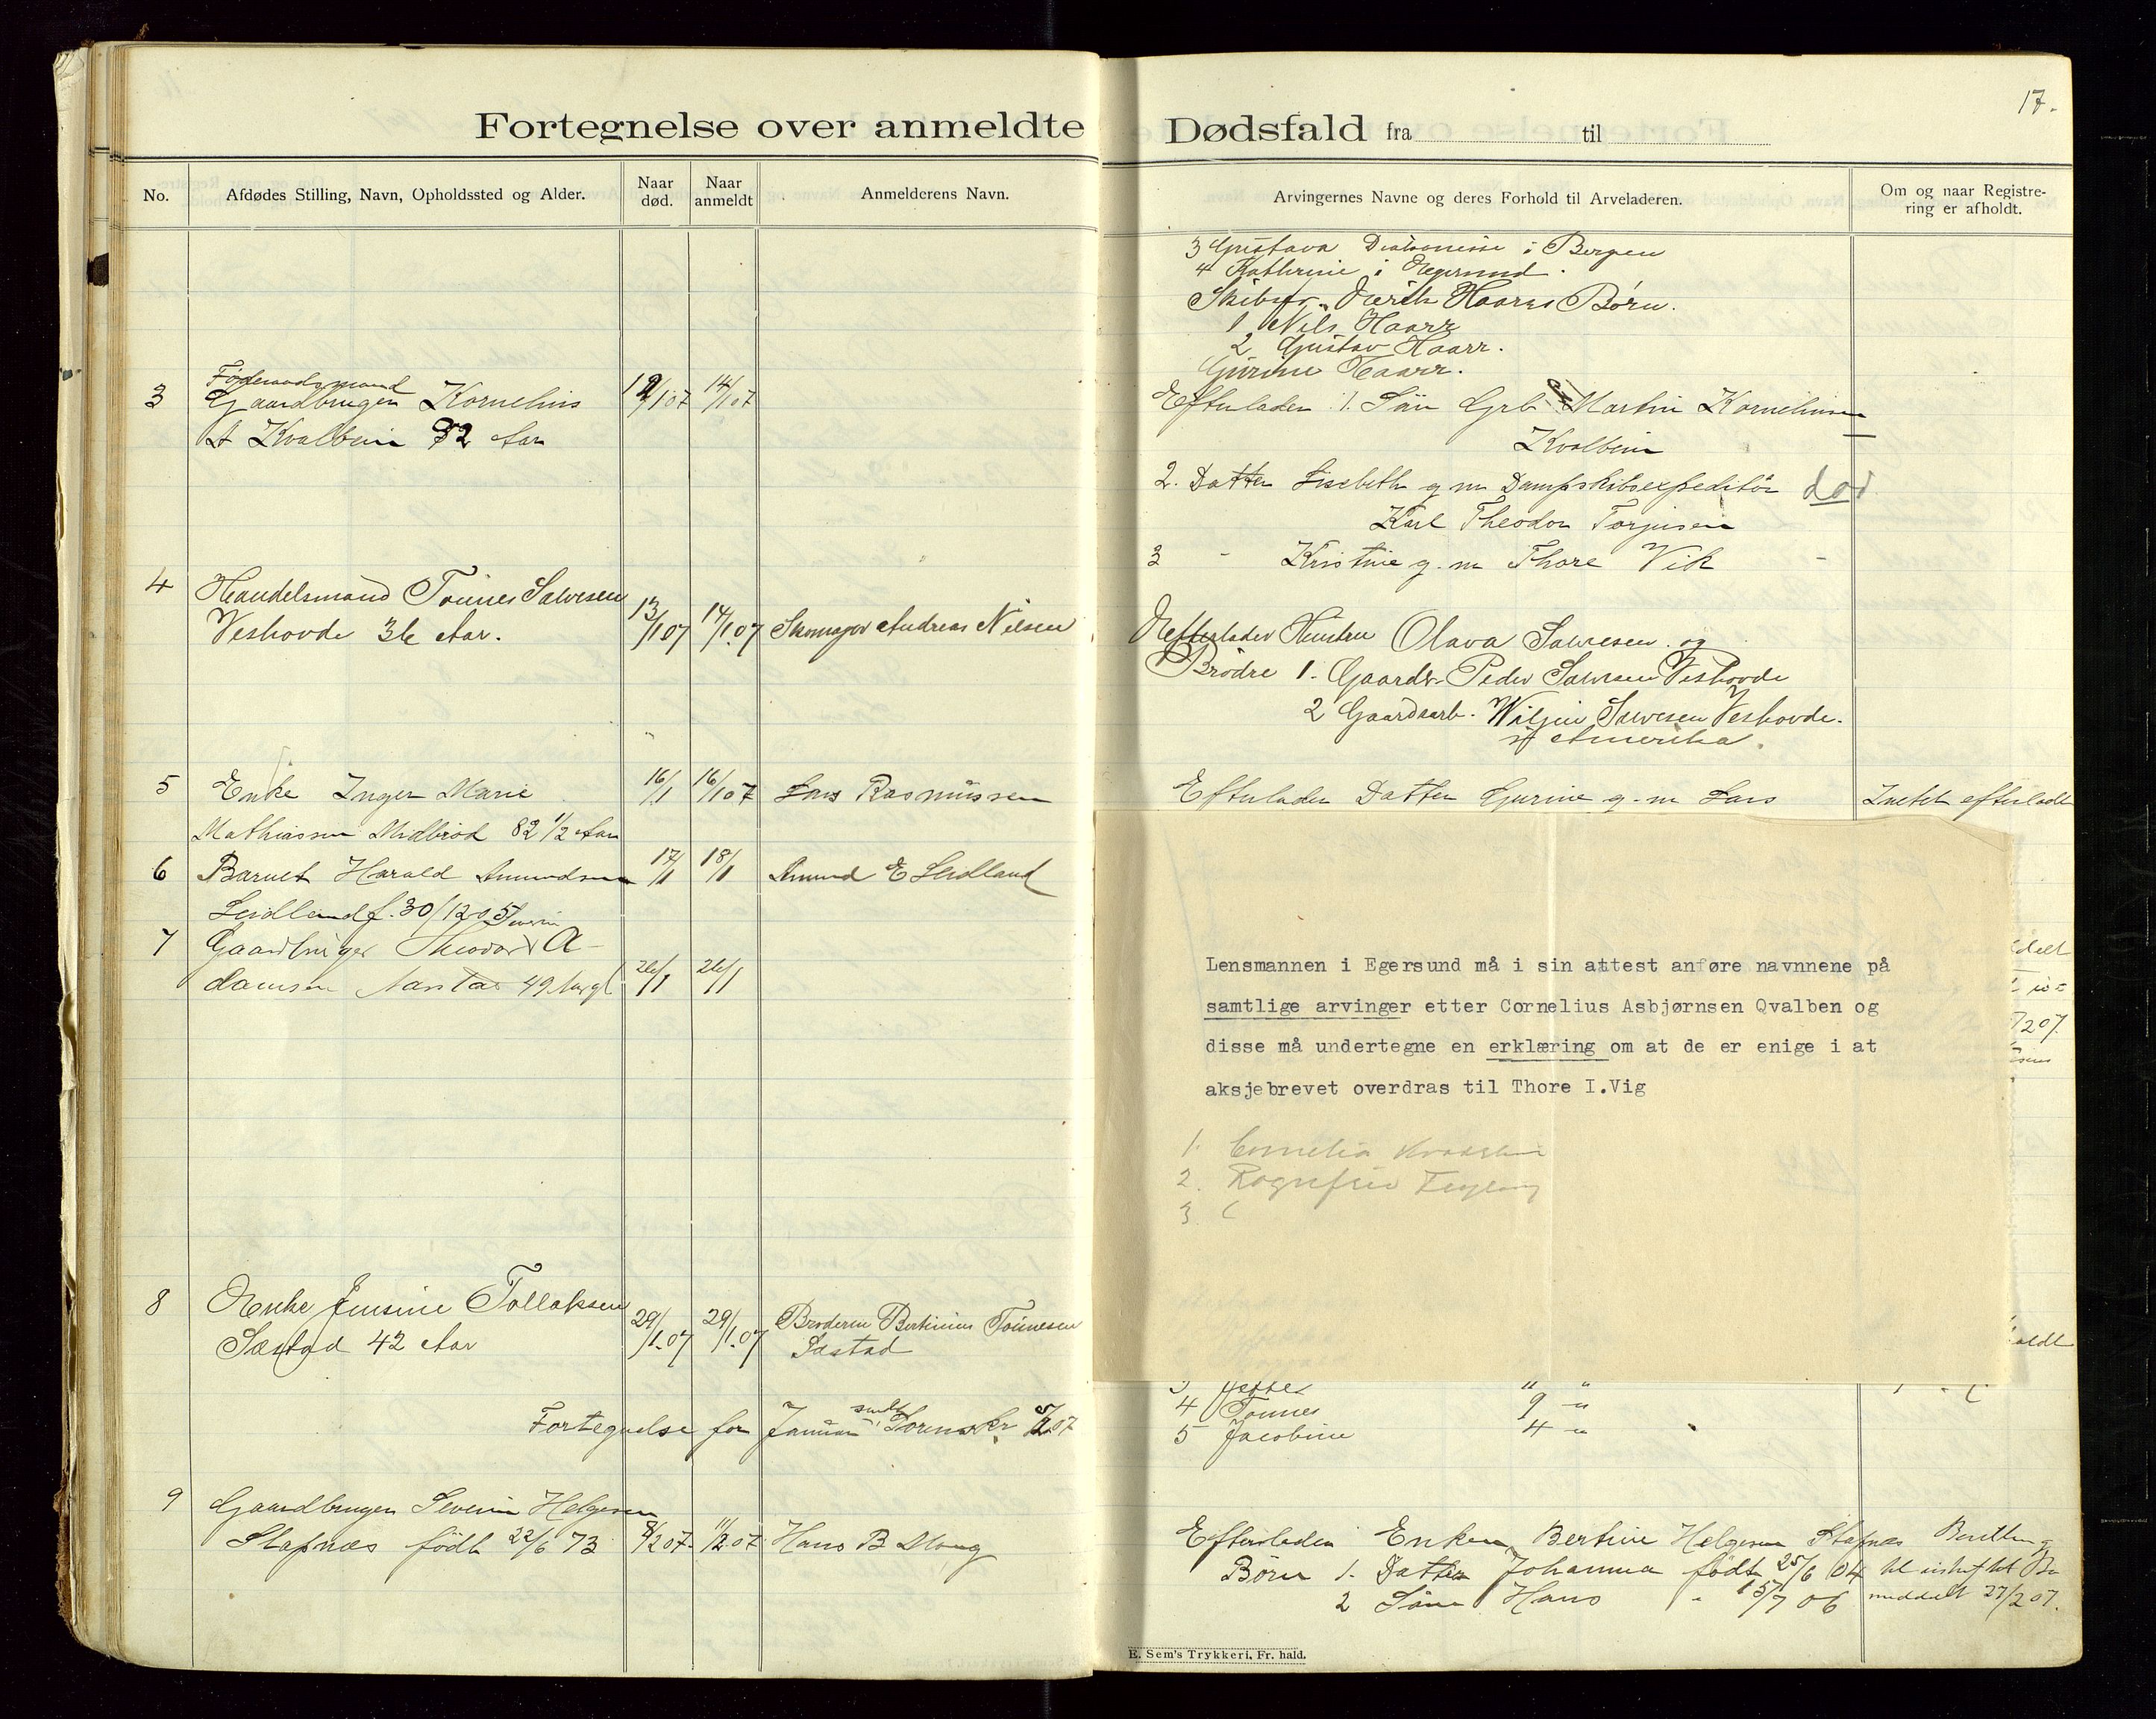 17.
Fortegnelse over anmeldte
No.
Afdødes Stilling, Navn, Opholdssted og Alder.
Naar død.
Naar anmeldt
Anmelderens Navn.
3
Føderaadsmand
Gaardbruger Kornelius
A Kvalbein 92 Aar
12/1 07
14/1 07
4
Handelsmand Tønnes Salvesen
Veshovde 36 Aar.
13/1 07
14/1 07
Skomager Andreas Nilsen
5
Enke Inger Marie
Mathiassen Midbrød 82 1/2 Aar
16/1
16/1 07
Lars Rasmussen
6
Barnet Harald Amundsen
Leidland f. 30/12 05
17/1
18/1
Amund E Leidland
7
Gaardbruger Theodor A-
damsen Aarstad 49 Aar gl.
26/1
26/1
8
Enke Jensine Tollaksen
Sæstad 42 Aar
29/1.07
29/1.07
Broderen Bertinius Tønnesen
Sæstad
Fortegnelse for Januar sendt Sorenskr 5/2.07
9
Gaardbruger Severin Helgesen
Stapnæs født 22/6 73
8/2 07.
11/2 07
Hans B Mong
Dødsfald fra til
Arvingernes Navne og deres Forhold til Arveladeren.
Om og naar Registre-
ring er afholdt.
3 Gustava Diakonisse i Bergen
4 Kathrine i Egersund.
Skibsf. Haarrs Børn.
1 Nils Haarr
2 Gustav Haarr.
Gurine Haarr.
Efterlader: 1. Søn Grb Martin Korneliusen
Kvalbein
2. Datter Lisebeth g m Dampskibsexpeditør død
Karl Theodor Torjusen
3 - Kristine g. m Thore Vik -
Efterlader Hustru Olava Salvesen og
Brødre 1. Gaardbr. Peder Salvesen Veshovde
2 Gaardsarb. Salvesen Veshovde.
Amerika.
Efterlader Datter Gurine g. m Lars
Intet efterladt
Lensmannen i Egersund må i sin attest anføre navnnene på
samtlige arvinger etter Cornelius Asbjørnsen Qvalben og
disse må undertegne en erklæring om at de er enige i at
aksjebrevet overdras til Thore I.Vig
1. Cornelia
2. Ragnfrid
3.
4 Tønnes 9 "
5 Jacobine 4 "
Efterlader Enken Bertine Helgesen Stapnæs
Børn 1. Datter Johanna født 25/6 04
2 Søn Hans " 15/7 06
meddelt 27/2 07.
E. Sem's Trykkeri, Fr. hald.